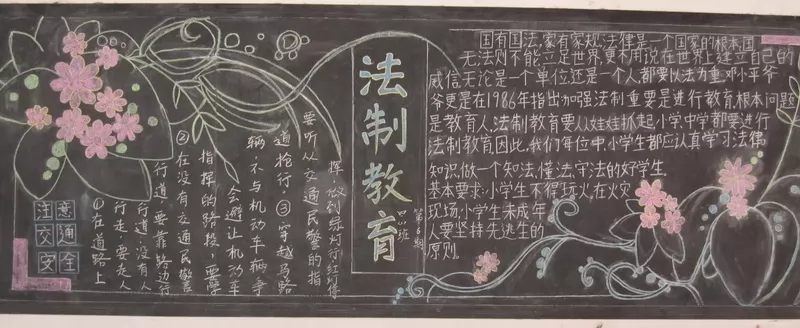 注意
交通
安全
①在道路上
行走,要走人
行道,没有人
行道,要靠路边行
②在没有交通民警
指挥的路段,要学
会避让机动车
辆,不与机动车辆争
道抢行.③穿越马路
要听从交通民警的指
挥,做到绿灯行,红灯停
法制教育
国有国法,家有家规,法律是一个国家的根本,国
无法则不能立足世界,更不用说在世界上建立自己的
威信,无论是一个单位还是一个人都要以法为重,邓小平爷
爷更是在1986年指出加强法制重要是进行教育,根本问题
是教育人,法制教育要从娃娃抓起,小学,中学都要进行
法制教育,因此,我们每位中小学生都应认真学习法律
知识,做一个知法,懂法,守法的好学生.
基本要求:小学生不得玩火,在火灾
现场,小学生未成年
人要坚持先逃生的
原则.